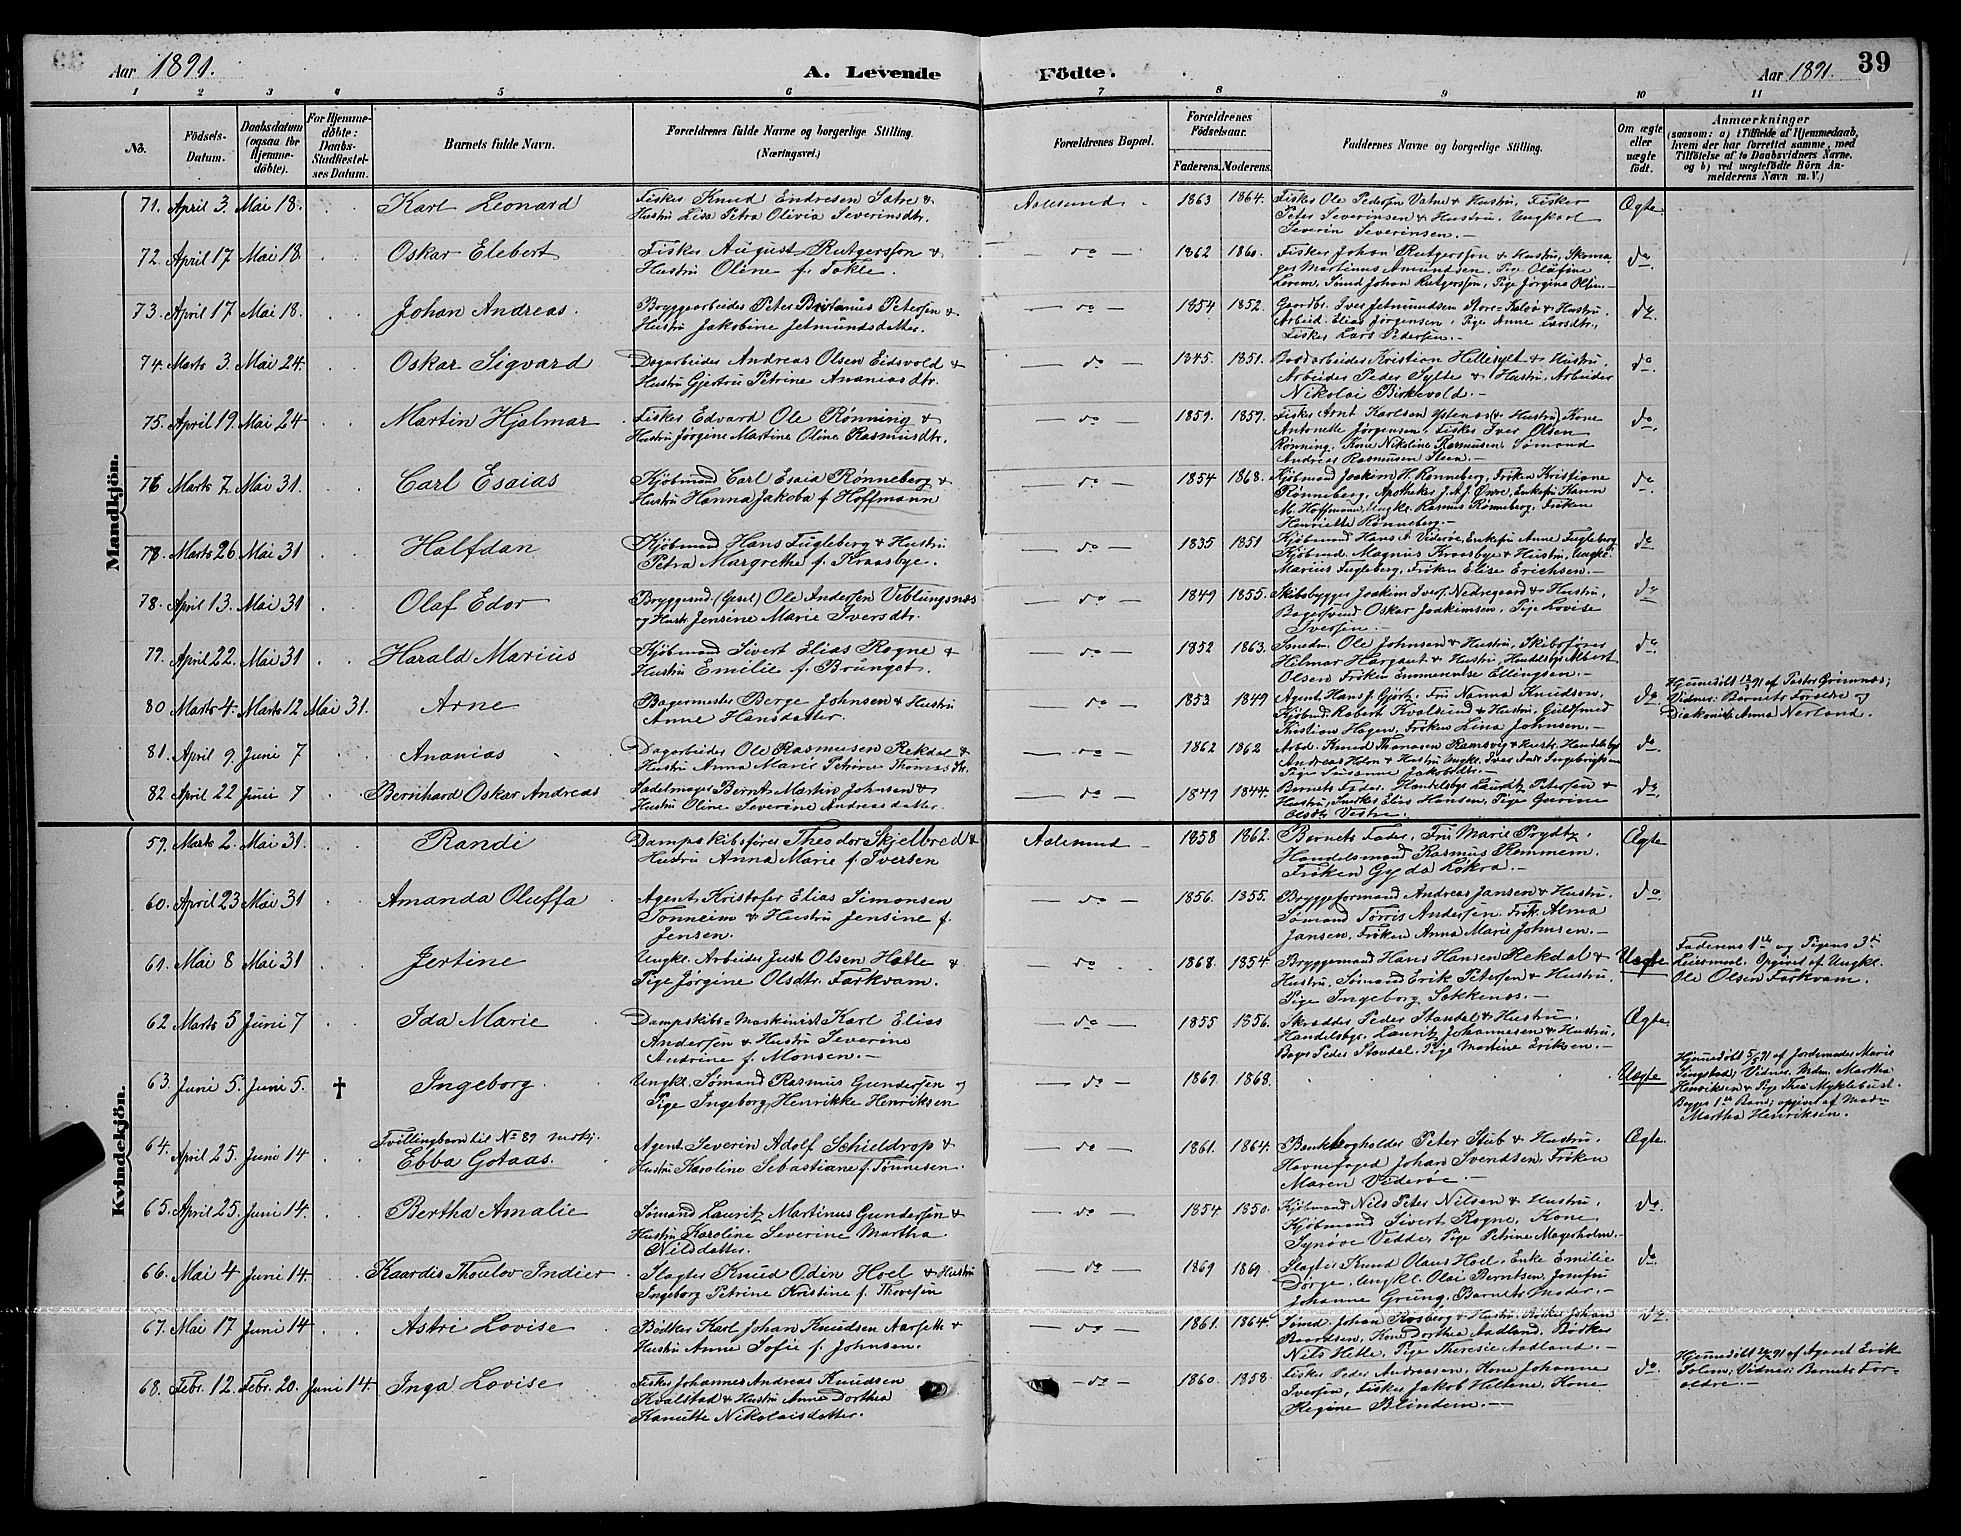 Aar 1891.
A. Levende
Födte.
Aar 1891.
39
1 2 3 4 5 6 7 8 9 10 11
No.
Födsels-
Datum.
Daabsdatum
(ogsaa for
Hjemme-
döbte).
For Hjemme-
döbte:
Daabs-
Stadfæstel-
ses Datum.
Barnets fulde Navn.
Forældrenes fulde Navne og borgerlige Stilling.
(Næringsvei.)
Forældrenes Bopæl.
Forældrenes
Födselsaar.
Faderens. Moderens.
Faddernes Navne og borgerlige Stilling.
Om ægte
eller
uægte
födt.
Anmærkninger
(saasom: a) i Tilfælde af Hjemmedaab,
hvem der har forrettet samme, med
Tilföielse af to Daabsvidners Navne,
og b) ved uægtefödte Börn An-
melderens Navn m. V.)
Mandkjön.
71. April 3. Mai 18. Karl Leonard
Fisker Knud Endresen Satre &
Hustru Lisa Petra Olivia Severinsdtr.
Aalesund 1863 1864.
Fisker Ole Pedersen Vatne & Hustru, Fisker
Peter Severinsen & Hustru, Ungkarl
Severin Severinsen.
Ægte
72. April 17 Mai 18. Oskar Elebert
Fisker August Rutgersson &
Hustru Oline f. Tokle.
do 1862 1860.
Fisker Johan Rutgersson & Hustru, Skoma
ger Martinus Amundsen, Pige Olafine
Lorem, Sömd Johan Rutgersson, Pige Jörgine Olsen.
do
73. April 17 Mai 18. Johan Andreas.
Bryggearbeider Peter Petersen &
Hustru Jakobine Jetmundsdatter.
do 1854 1852.
Gaardbr. Iver Jetmundsen Store-Kalöe & Hustru.
Arbeid. Elias Jörgensen, Pige Anne Larsdtr.,
Fisker Lars Pedersen.
do
74. Marts 3. Mai 24. Oskar Sigvard
Dagarbeider Andreas Olsen Eidsvold &
Hustru Gjertru Petrine Ananiasdtr.
do 1845. 1851.
Bodarbeider Kristian Hellesylt & Hustru,
Arbeider Peder Sylte & Hustru, Arbeider
Nikolai Birkevold.
do
75. April 19. Mai 24 Martin Hjalmar
Fisker Edvard Ole Rönning &
Hustru Jörgene Martine Oline Rasmusdtr.
do 1859. 1859.
Fisker Arnt Karlsen Ystenes (& Hustru) Kone
Antonette Jörgensen, Fisker Iver Olsen
Rönning, Kone Nikoline Rasmusen, Sömand
Andreas Rasmusen Steen.
do
76 Marts 7. Mai 31. Carl Esaias
Kjöbmand Carl Esaia Rönneberg &
Hustru Hanna Jakoba f. Hoffmann
do 1854 1868.
Kjöbmand Joakim H. Rönneberg, Fröken Kristiane
Rönneberg, Apotheker J.A.J. Övre, Enkefru Karen
M. Hoffmann, Ungkr. Rasmus Rönneberg, Fröken
Henriette Rönneberg.
do
78. Marts 26. Mai 31 Halfdan
Kjöbmand Hans Fugleberg & Hustru
Petra Margrethe f. Kraasbye.
do 1835 1851
Kjöbmand Hans A. Vederöe, Enkefru Anne Fugleberg
Kjöbmd. Magnus Kraasbye & Hustru, Ungkr.
Marius Fugleberg, Fröken Elise Erichsen.
do
78. April 13. Mai 31 Olaf Edor
Bryggemd. (Gesel) Ole Andersen Veblungsnæs
og Hustr. Jensine Marie Iversdtr.
do 1849 1855.
Skibsbygger Joakim Ivers. Nedregaard & Hustru,
Bagersvend Oskar Joakimsen, Pige Lovise
Iversen.
do
79. April 22. Mai 31 Harald Marius
Kjöbmand Sivert Elias Rogne &
Hustru Emilie f. Brunget.
do 1852 1863.
Snedkr. Ole Johnsen & Hustru, Skibsförer
Hilmar Hargaut & Hustru, Handelsbgr. Albert
Olsen, Fröken Emmerentse Ellingsen.
do
80 Marts 4. Marts 12 Mai 31. Arne
Bagermester Berge Johnsen & Hustru
Anne Hansdatter.
do 1853 1849
Agent Hans J. Gjörtz, Fru Nanna Knudson,
Kjöbmd. Robert Kvalsund & Hustru, Guldsmed
Kristian Hagen, Fröken Lina Johnsen.
do
Hjemmedöbt 12/3 91 af Pastor Grimnæs;
Vidner: Barnets Forældre og
Diakonisse Anna Nerland.
81. April 9. Juni 7 Ananias
Dagarbeider Ole Rasmusen Rekdal &
Hustru Anna Marie Petrine Thomasdtr.
do 1862 1862
Arbd. Knud Thomasen Ramsvig & Hustr. Handelsbgr.
Andreas Holm & Hustru, Ungkr. Iver Andr. Ingebrigtsen
Pige Susanne Jakobsdtr.
do
82 April 22 Juni 7 Bernhard Oskar Andreas
Sadelmager Bernt Martin Johnsen &
Hustru Oline Severine Andreasdatter.
do 1849 1844.
Barnets Fader. Handelsbgr. Lauritz Petersen &
Hustru, Snedker Elias Hansen, Pige Gurine
Olsdtr. Vestre.
do
Kvindekjön.
59. Marts 2. Mai 31. Randi
Dampskibsförer Theodor Skjelbred &
Hustru Anna Marie f. Iversen
Aalesund 1858 1862.
Barnets Fader, Fru Marie Prydtz,
Handelsmand Rasmus Remmem.
Fröken Gyda Lökra.
Ægte
60. April 23 Mai 31 Amanda Oluffa
Agent Kristofer Elias Simonsen
Tonneim & Hustru Jensine f.
Jensen.
do 1856. 1855.
Bryggeformand Andreas Jansen & Hustru.
Sömand Torris Andersen. Frök. Alma
Jansen, Fröken Anna Marie Johnsen.
do
61. Mai 8 Mai 31 Jertine
Ungkr. Arbeider Just Olsen Hatle &
Pige Jörgine Olsdtr. Farkvam.
do 1868. 1854.
Bryggemand Hans Hansen Rekdal &
Hustru, Sömand Erik Petersen & Hustru,
Pige Ingeborg Sekkenæs.
Uægte
Faderens 1ste og Pigens 3die
Leiermaal. Opgivet af Ungkr.
Ole Olsen Farkvam.
62 Marts 5 Juni 7 Ida Marie
Dampskibs-Maskinist Karl Elias
Andersen & Hustru Severine
Andrine f. Monsen.
do 1855 1856.
Skrædder Peder Standal & Hustru.
Handelsbgr. Lauritz Johannesen & Hustru.
Bager Peder Standal. Pige Martine Eriksen.
Ægte
63. Juni 5. Juni 5. † Ingeborg.
Ungkr. Sömand Rasmus Gundersen og
Pige Ingeborg Henrikke Henriksen
do 1869. 1868.
Uægte
Hjemmedöbt 5/6 91 af Jordemoder Marie
Singstad; Vidner: Mdm. Martha
Henriksen & Pige Thea Myklebust.
Begges 1ste Barn; opgivet af Madm
Martha Henriksen.
64. April 25. Juni 14
Tvillingbarn til No 89 mdkj.
Ebba Gotaas.
Agent Severin Adolf Schieldrop &
Hustru Karoline Sebastiane f. Tönnesen.
do 1861. 1864.
Bankbogholder Peter Stub & Hustru.
Havnefoged Johan Svendsen, Fröken
Maren Vederöe.
Ægte
65. April 25. Juni 14. Bertha Amalie
Sömand Lauritz Martinus Gundersen &
Hustru Karoline Severine Martha
Nilsdatter.
do 1854 1850.
Kjöbmand Nils Peter Nilsen & Hustru.
Kjöbmand Sivert Rogne, Kone
Synöve Vedde, Pige Petrine Magerholm.
do
66. Mai 4 Juni 14. Kaardis Thoulov Indier
Slagter Knud Odin Hoel & Hustru
Ingeborg Petrine Kristine f. Thoresen
do 1869 1869.
Slagter Knud Olaus Hoel, Enke Emilie
Dorge, Ungkr. Olai Berntsen, Jomfru
Johanne Grung, Barnets Moder.
do
67. Mai 17 Juni 14 Astri Lovise
Bödker Karl Johan Knudsen Aarseth &
Hustru Anne Sofie f. Johnsen.
do 1861. 1864.
Sömd. Johan Rosberg & Hustru, Johan
Baardsen, Kone Dorthea Aadland, Bödker
Nils Hetle, Pige Theresie Aadland.
do
68. Febr. 12. Febr. 20. Juni 14. Inga Lovise
Fisker Johannes Andreas Knudsen
Kvalstad & Hustru Anne Dorthea
Hanutte Nikolaisdatter.
do 1860. 1858.
Fisker Peder Andreassen, Kone Johanne
Iversen, Fisker Jakob Hellene, Kone
Regine Blindem.
do.
Hjemmedöbt 20/2 91 af Agent Erik
Solem; Vidner: Barnets For-
ældre.